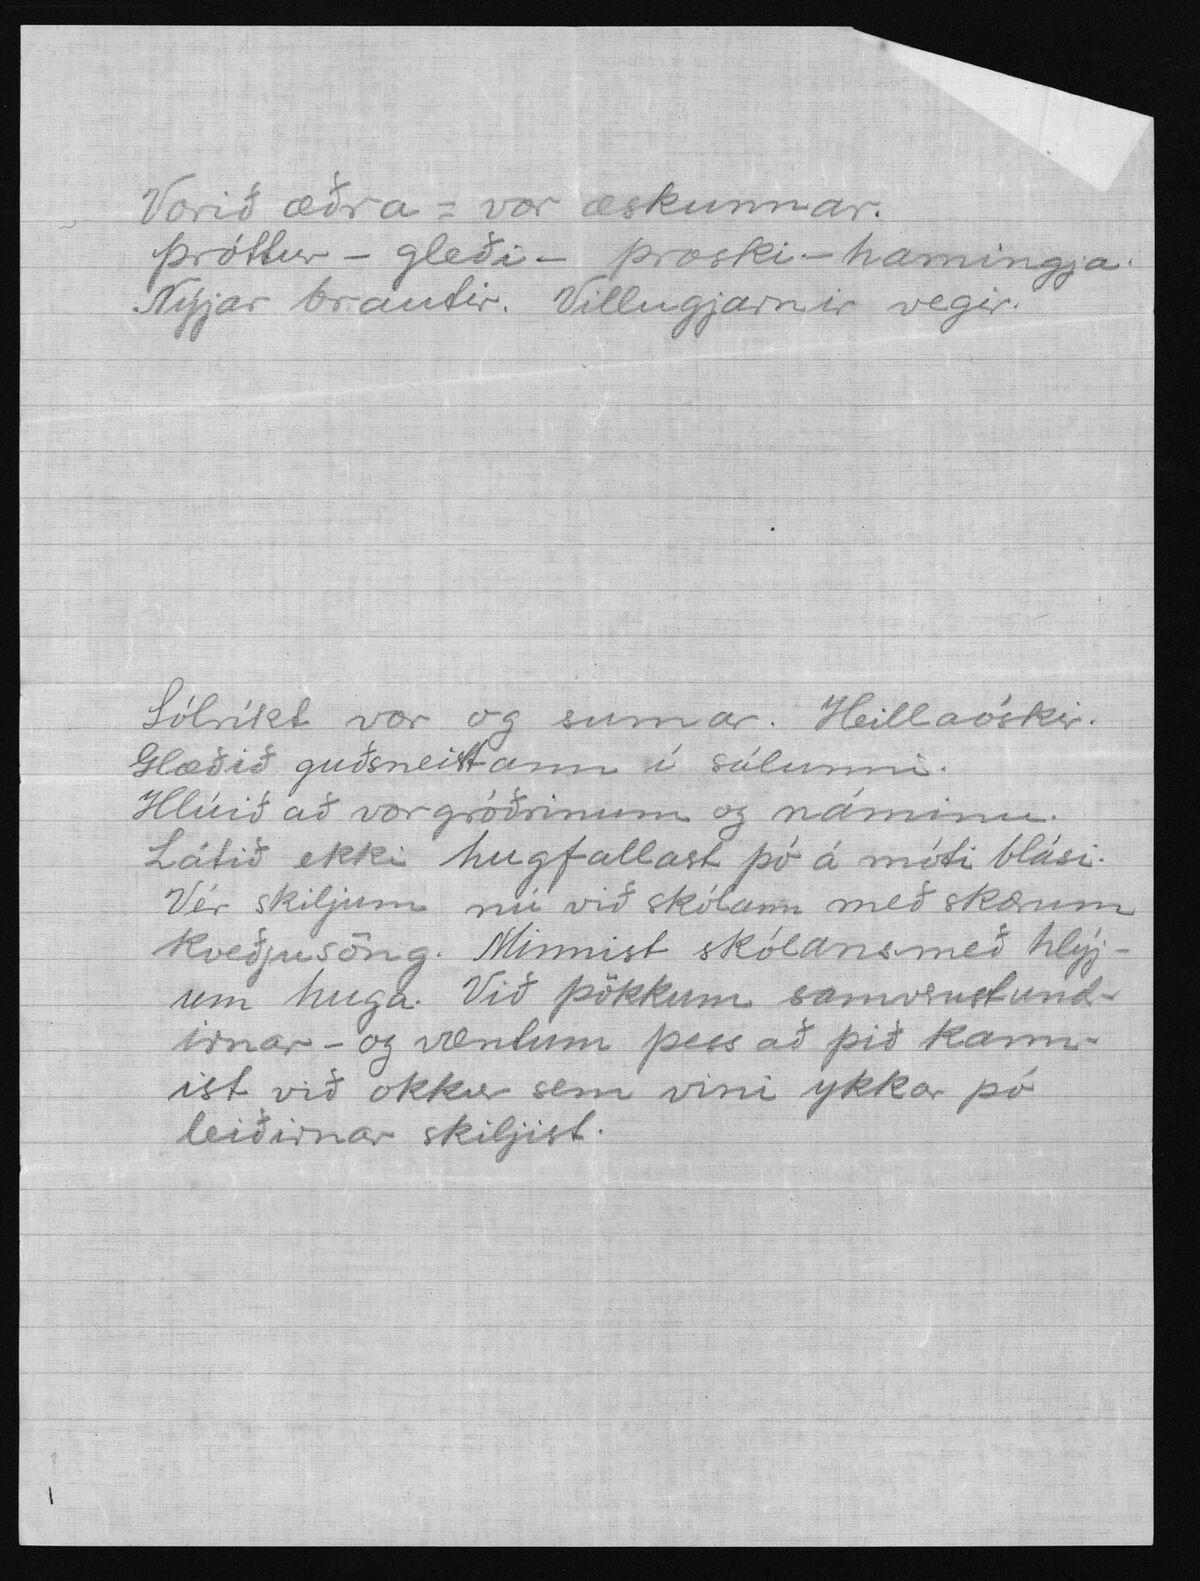 Vorið æðra = vor æskunnar.
Þróttur – gleði – þroski – hamingja.
Nýjar brautir. Villugjarnir vegir.
Sólríkt vor og sumar. Heillaóskir.
Glæðið guðsneistann í sálunni.
Hlúið að vorgróðrinum og náminu.
Látið ekki hugfallast þó á móti blási.
Vér skiljum nú við skólann með skærum
kveðjusöng. Minnist skólans með hlýj-
um huga. Við þökkum samverustund-
irnar – og væntum þess að þið kann-
ist við okkur sem vini ykkar þó
leiðirnar skiljist.